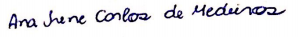 Ana Irene Carlos de Medeiros